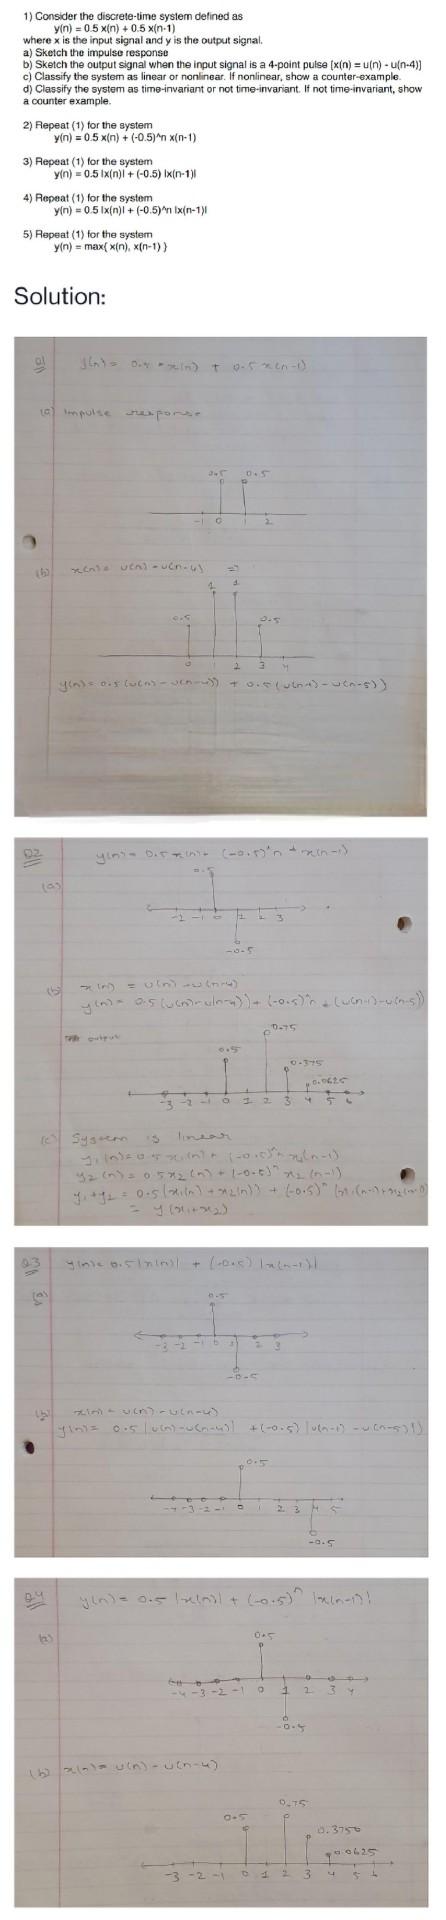 1) Consider the discrete-time system defined as
y(n) = 0.5 x(n) + 0.5 x(n-1)
where x is the input signal and y is the output signal.
a) Sketch the impulse response
b) Sketch the output signal when the input signal is a 4-point pulse [x(n) = u(n) - u(n-4)]
c) Classify the system as linear or nonlinear. If nonlinear, show a counter-example.
d) Classify the system as time-invariant or not time-invariant. If not time-invariant, show
a counter example.
2) Repeat (1) for the system
y(n) = 0.5 x(n) + (-0.5)^n x(n-1)
3) Repeat (1) for the system
y(n) = 0.5 |x(n)| + (-0.5) |x(n-1)|
4) Repeat (1) for the system
y(n) = 0.5 |x(n)| + (-0.5)^n |x(n-1)|
5) Repeat (1) for the system
y(n) = max{ x(n), x(n-1) }
Solution:
Q1 y(n) = 0.5 * x(n) + 0.5 x(n-1)
(a) Impulse response
0.5 0.5
-1 0 1 2
(b) x(n) = u(n) - u(n-4) =>
1 1
0.5 0.5
0 1 2 3 4
y(n) = 0.5 (u(n) - u(n-4)) + 0.5 (u(n-1) - u(n-5))
Q2 y(n) = 0.5 x(n) + (-0.5)^n * x(n-1)
(a)
0.5
-2 -1 0 1 2 3
-0.5
(b) x(n) = u(n) - u(n-4)
y(n) = 0.5 (u(n) - u(n-4)) + (-0.5)^n * (u(n-1) - u(n-5))
output
0.75
0.5
0.375
0.0625
-3 -2 -1 0 1 2 3 4 5 6
(c) System is linear
y1(n) = 0.5 x1(n) + (-0.5)^n x1(n-1)
y2(n) = 0.5 x2(n) + (-0.5)^n x2(n-1)
y1+y2 = 0.5 (x1(n) + x2(n)) + (-0.5)^n (x1(n-1) + x2(n-1))
= y(x1+x2)
Q3 y(n) = 0.5 |x(n)| + (-0.5) |x(n-1)|
(a)
0.5
-3 -2 -1 0 1 2 3
-0.5
(b) x(n) = u(n) - u(n-4)
y(n) = 0.5 |u(n) - u(n-4)| + (-0.5) |u(n-1) - u(n-5)|)
0.5
-4 -3 -2 -1 0 1 2 3 4 5
-0.5
Q4 y(n) = 0.5 |x(n)| + (-0.5)^n |x(n-1)|
(a)
0.5
-4 -3 -2 -1 0 1 2 3 4
-0.5
(b) x(n) = u(n) - u(n-4)
0.75
0.5
0.3750
0.0625
-3 -2 -1 0 1 2 3 4 5 6